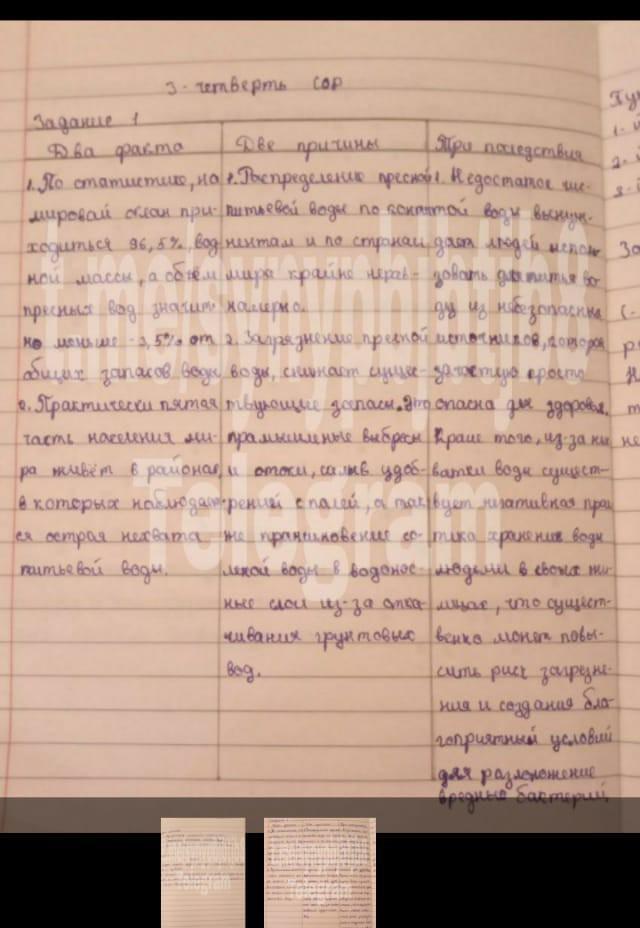 3 - четверть СОР
Задание 1
Два факта
1. По статистике, на
мировой океан при-
ходиться 96,5% вод
ной массы, а объём
пресных вод значит
но меньше - 3,5% от
общих запасов воды
2. Практически пятая
часть населения ми-
ра живёт в районах,
в которых наблюдает-
ся острая нехватка
питьевой воды.
Две причины
1. Распределение пресной
питьевой воды по конти
нентам и по странам
мира крайне нерав-
намерно.
2. Загрязнение пресной
воды, снижает сущес-
твующие запасы. Это
промышленные выбросы
и стоки, смыв удоб-
рений с полей, а так
же проникновение со-
лёной воды в водонос-
ные слои из-за отка-
чивания грунтовых
вод.
Три последствия
1. Недостаток чис-
той воды вынуж-
дает людей исполь
зовать для питья во
ду из небезопасных
источников, которая
зачастую просто
опасна для здоровья.
Краше того, из-за не
хватки воды сущест-
вует негативная прак
тика хранения воды
людьми в своих жи-
лищах, что сущест-
венно может повы-
сить риск загрязне-
ния и создания бла-
гоприятный условий
для размножение
вредный бактерий,
1.
2.
3.
t.me/supynphihthb
Telegram